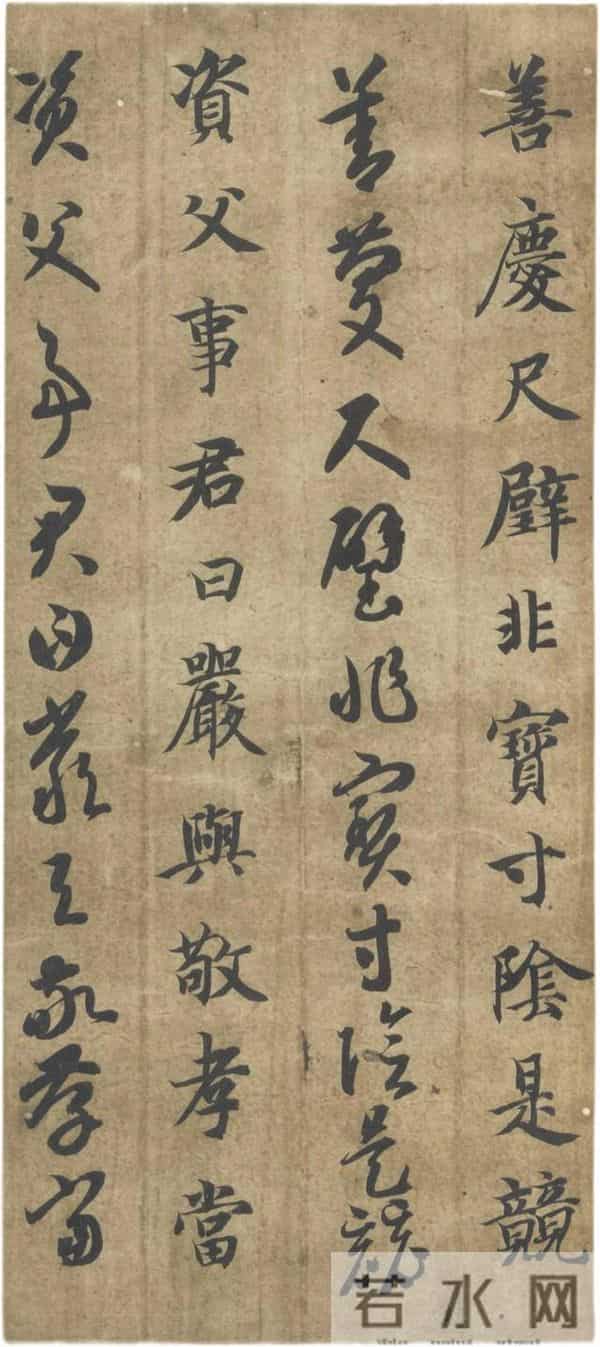 善慶尺璧非寶寸陰是競
善慶尺璧非寶寸陰是競
資父事君曰嚴與敬孝當
資父事君曰嚴與敬孝當
若水网